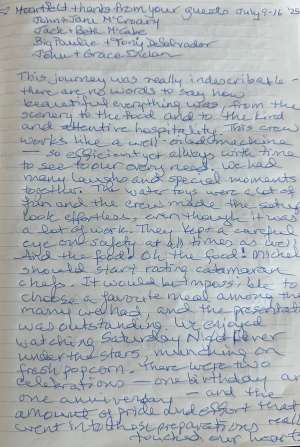 Heartfelt thanks from your guests July 9-16 '25
John + Jane McGroary
Jack + Beth McCabe
Big Paulie + Toni DeSalvador
John + Grace
This journey was really indescribable -
there are no words to say how
beautiful everything was, from the
scenery to the food and to the kind
and attentive hospitality. This crew
works like a well-oiled machine
- so efficient yet always with time
to see to our every need. We had
many laughs and special moments
together. The water toys were a lot of
fun and the crew made the setup
look effortless, even though it was
a lot of work. They kept a careful
eye on safety at all times as well.
And the food! Oh the food! Michel
should start rating catamaran
chefs. It would be impossible to
choose a favourite meal among the
many we had, and the presentation
was outstanding. We enjoyed
watching Saturday Night Fever
under the stars, munching on
fresh popcorn. There were two
celebrations - one birthday an
one anniversary - and the
amount of pride and effort that
went into those preparations really
touched our heart